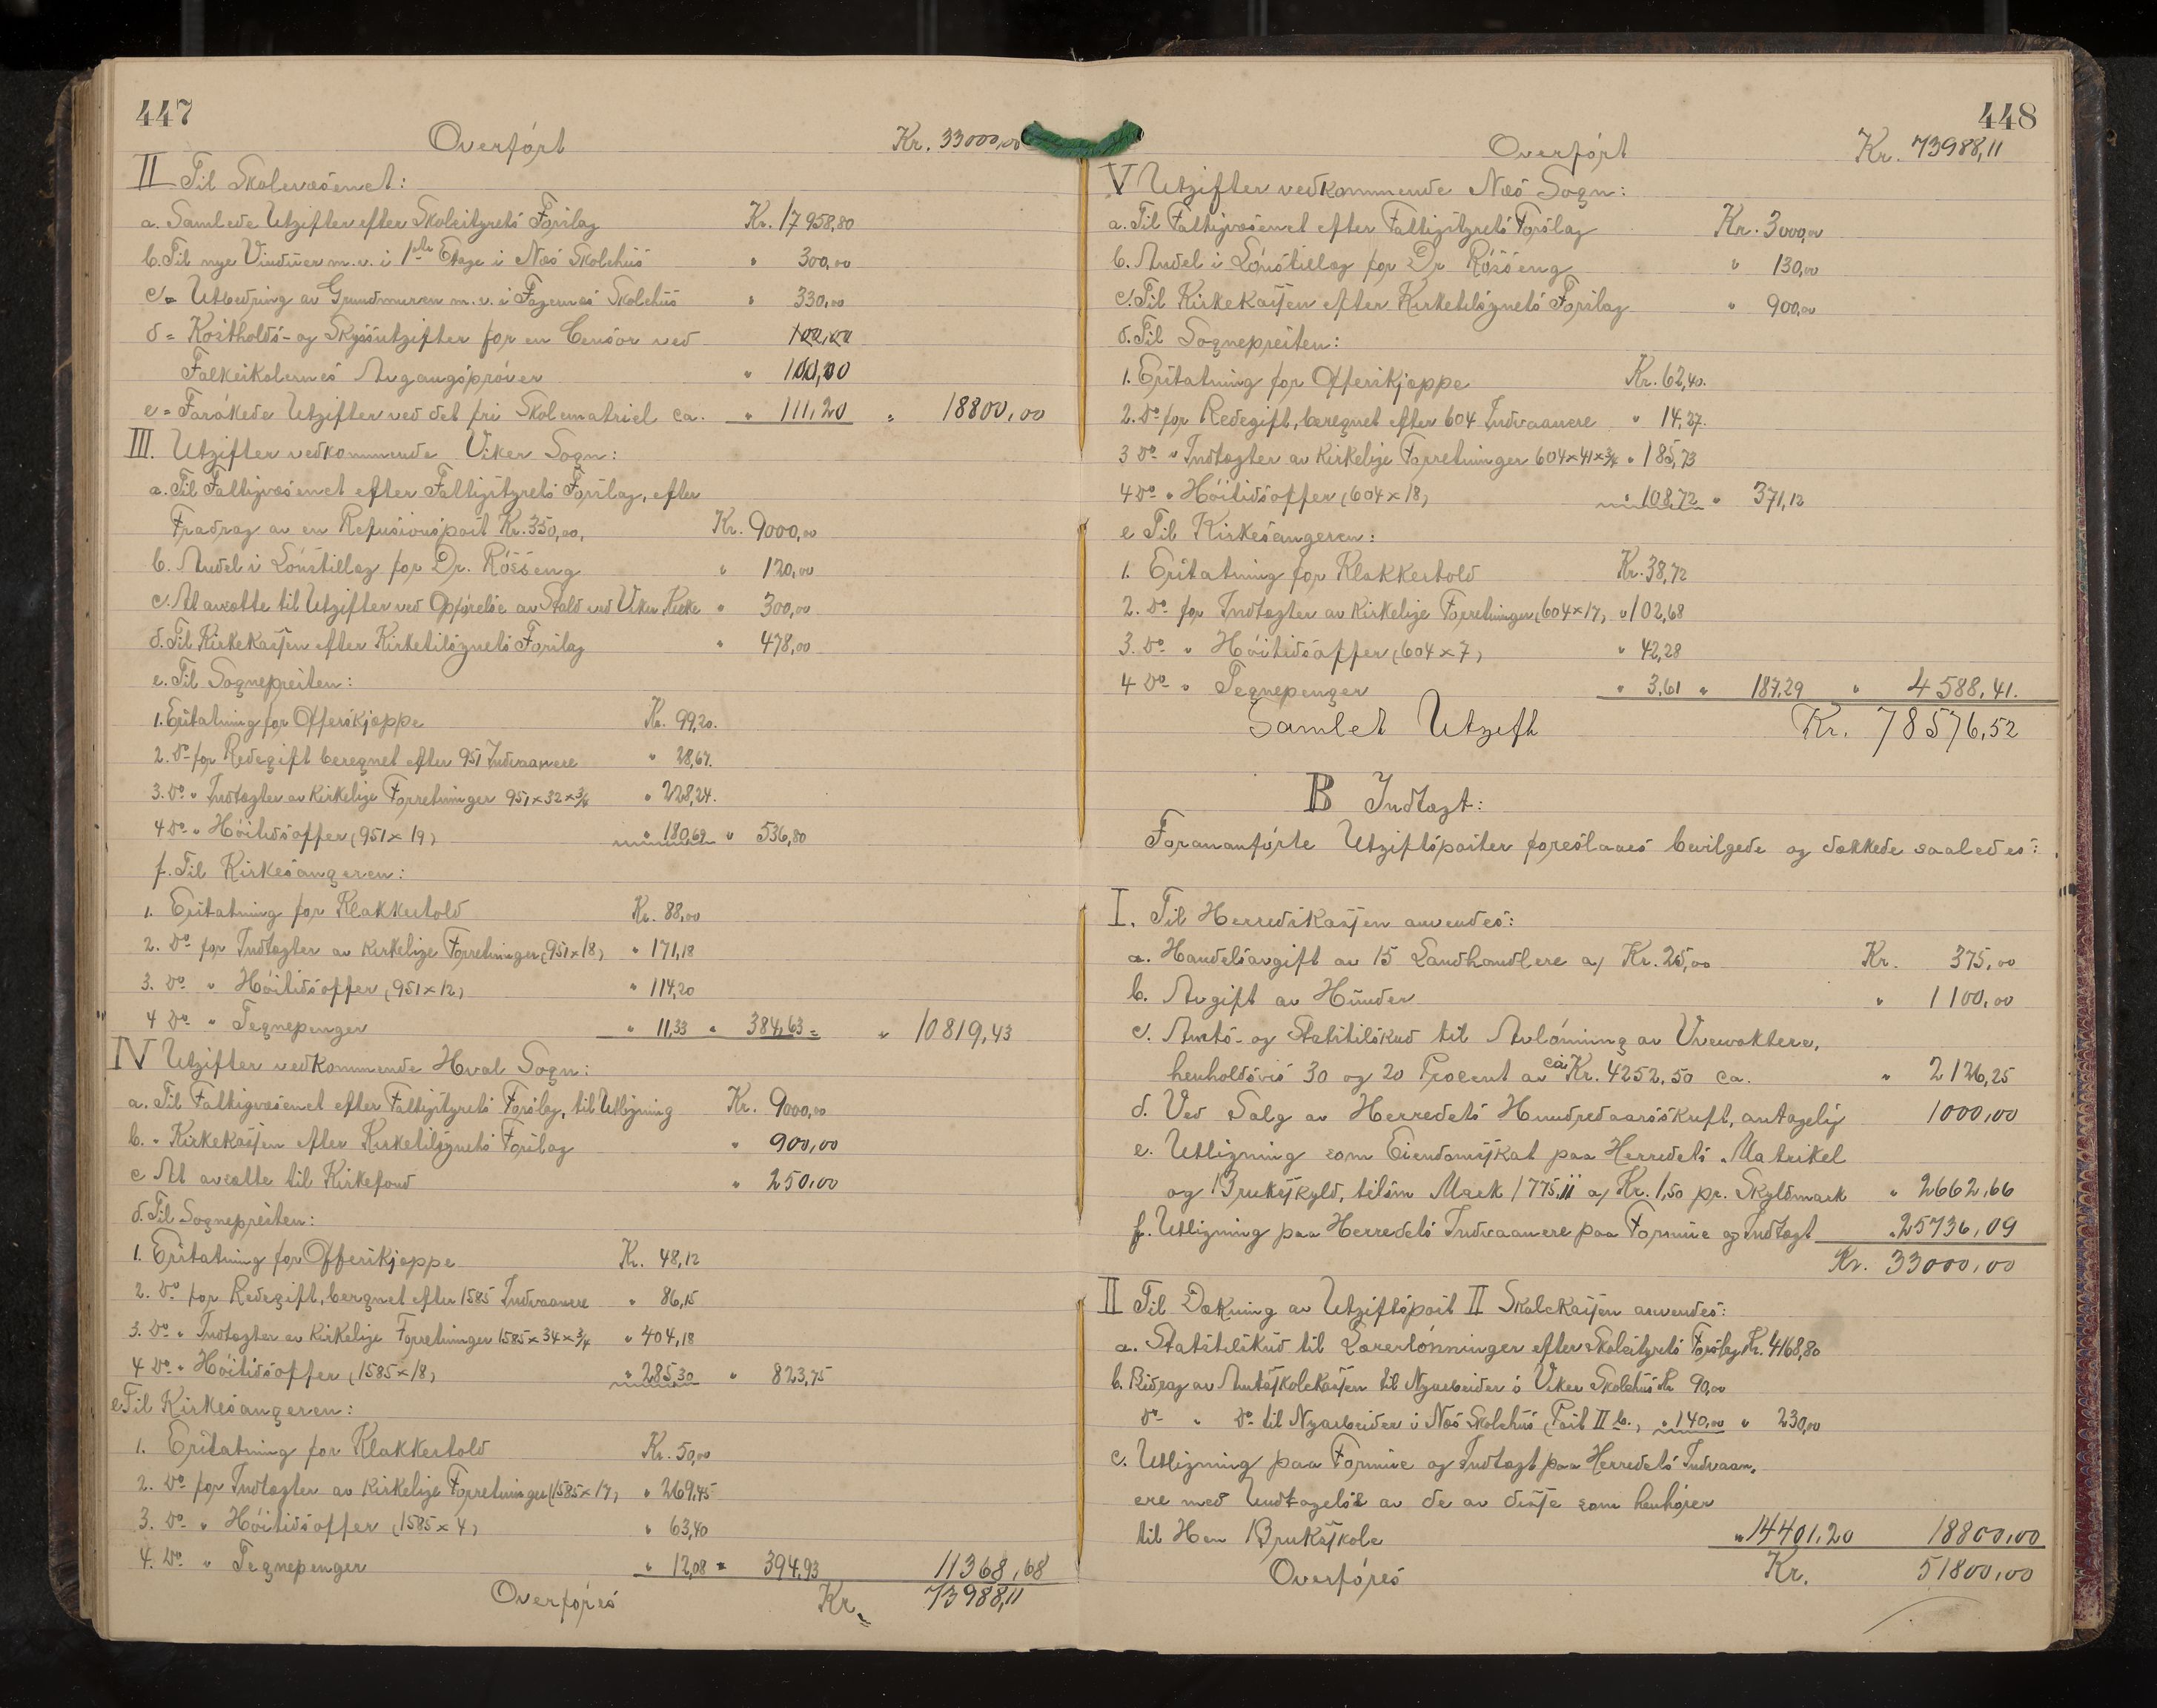 447
Overført Kr. 33000,00
II Til Skolevæsenet:
a. Samlede Utgifter efter Skolestyrets Forslag Kr. 17958,80
b. Til nye Vinduer m.v. i 1ste Etage i Næs Skolehus " 300,00
c = Utbedring av Grundmuren m.v. i Fagernes Skolehus " 330,00
d = Kostholds- og Skyssutgifter for en Censor ved
Folkeskolernes Avgangsprøver " 100,00
e = Forøkede Utgifter ved det fri Skolematriel ca. " 111,20 " 18800,00
III. Utgifter vedkommende Viker Sogn:
a. Til Fattigvæsenet efter Fattigstyrets Forslag, efter
Fradrag av en Refusionspost Kr. 350,00, Kr. 9000,00
b. Andel i Lønstillæg for Dr. Røsseng " 120,00
c. At avsætte til Utgifter ved Opførelse av Stald ved Viker Kirke " 300,00
d. Til Kirkekassen efter Kirketilsynets Forslag " 478,00
e. Til Sognepresten:
1. Erstatning for Offerskjæppe Kr. 99,20.
2. Do for Redegift beregnet efter 951 Indvaanere " 28,67.
3. Do " Indtægter av Kirkelige Forretninger 951×32×3/4 " 228,24.
4 Do " Høitidsoffer (951×19) " 180,69 " 536,80
f. Til Kirkesangeren:
1. Erstatning for Klokkertold Kr. 88,00
2. Do for Indtægter av Kirkelige Forretninger (951×18) " 171,18
3. Do " Høitidsoffer (951×12) " 114,20
4 Do " Tegnepenger " 11,33 " 384,63 = " 10819,43
IV Utgifter vedkommende Hval Sogn:
a. Til Fattigvæsenet efter Fattigstyrets Forslag, til Utligning Kr. 9000,00
b. " Kirkekassen efter Kirketilsynets Forslag " 900,00
c At avsætte til Kirkefond " 250,00
d. Til Sognepresten:
1. Erstatning for Offerskjæppe Kr. 48,12
2. Do for Redegift, beregnet efter 1585 Indvaanere " 86,15
3. Do " Indtægter av Kirkelige Forretninger 1585×34×3/4 " 404,18
4 Do " Høitidsoffer (1585×18) " 285,30 " 823,75
e Til Kirkesangeren:
1. Erstatning for Klokkertold Kr. 50,00
2. Do for Indtægter av Kirkelige Forretninger (1585×17) " 269,45
3. Do " Høitidsoffer (1585×4) " 63,40
4. Do " Tegnepenger " 12,08 = 394,93 11368,68
Overføres Kr. 73988,11
448
Overført Kr. 73988,11
V Utgifter vedkommende Næs Sogn:
a. Til Fattigvæsenet efter Fattigstyrets Forslag Kr. 3000,00
b. Andel i Lønstillæg for Dr Røsseng " 130,00
c. Til Kirkekassen efter Kirketilsynets Forslag " 900,00
d. Til Sognepresten:
1. Erstatning for Offerskjæppe Kr. 62,40.
2. Do for Redegift, beregnet efter 604 Indvaanere " 14,27.
3 Do " Indtægter av Kirkelige Forretninger 604×41×3/4 " 185,73
4 Do " Høitidsoffer (604×18) " 108,72 " 371,12
e Til Kirkesangeren:
1. Erstatning for Klokkertold Kr. 38,72
2. Do for Indtægter av Kirkelige Forretninger (604×17) " 102,68
3. Do " Høitidsoffer (604×7) " 42,28
4 Do " Tegnepenger " 3,61 " 187,29 " 4588,41.
Samlet Utgift Kr. 78576,52
B Indtægt:
Forananførte Utgiftsposter foreslaaes bevilgede og dækkede saaledes:
I. Til Herredskassen anvendes:
a. Handelsavgift av 15 Landhandlere a, Kr. 25,00 Kr. 375,00
b. Avgift av Hunder " 1100,00
c. Amts- og Statstilskud til Avlønning av Urevæktere,
henholdsvis 30 og 20 Procent av ca Kr. 4252,50 ca. " 2126,25
d. Ved Salg av Herredets Hundredaarsskrift, antagelig 1000,00
e. Utligning som Eiendomsskat paa Herredets Matrikel
og Brukskyld, tilsm Mark 1775,11 a, Kr. 1,50 pr. Skyldmark " 2662,66
f. Utligning paa Herredets Indvaanere paa Formue og Indtægt " 25736,09
Kr. 33000,00
II Til Dækning av Utgiftspost II Skolekassen anvendes:
a. Statstilskud til Lærerlønninger efter Skolestyrets Forslag Kr. 4168,80
b. Bidrag av Amtsskolekassen til Nyarbeider i Viker Skolehus Kr 90,00
Do " Do til Nyarbeider i Næs Skolehus (Post II b.) " 140,00 " 230,00
c. Utligning paa Formue og Indtægt paa Herredets Indvaan-
ere med Undtagelse av de av disse som henhører
til Hen Brukskole " 14401,20 18800,00
Overføres Kr. 51800,00